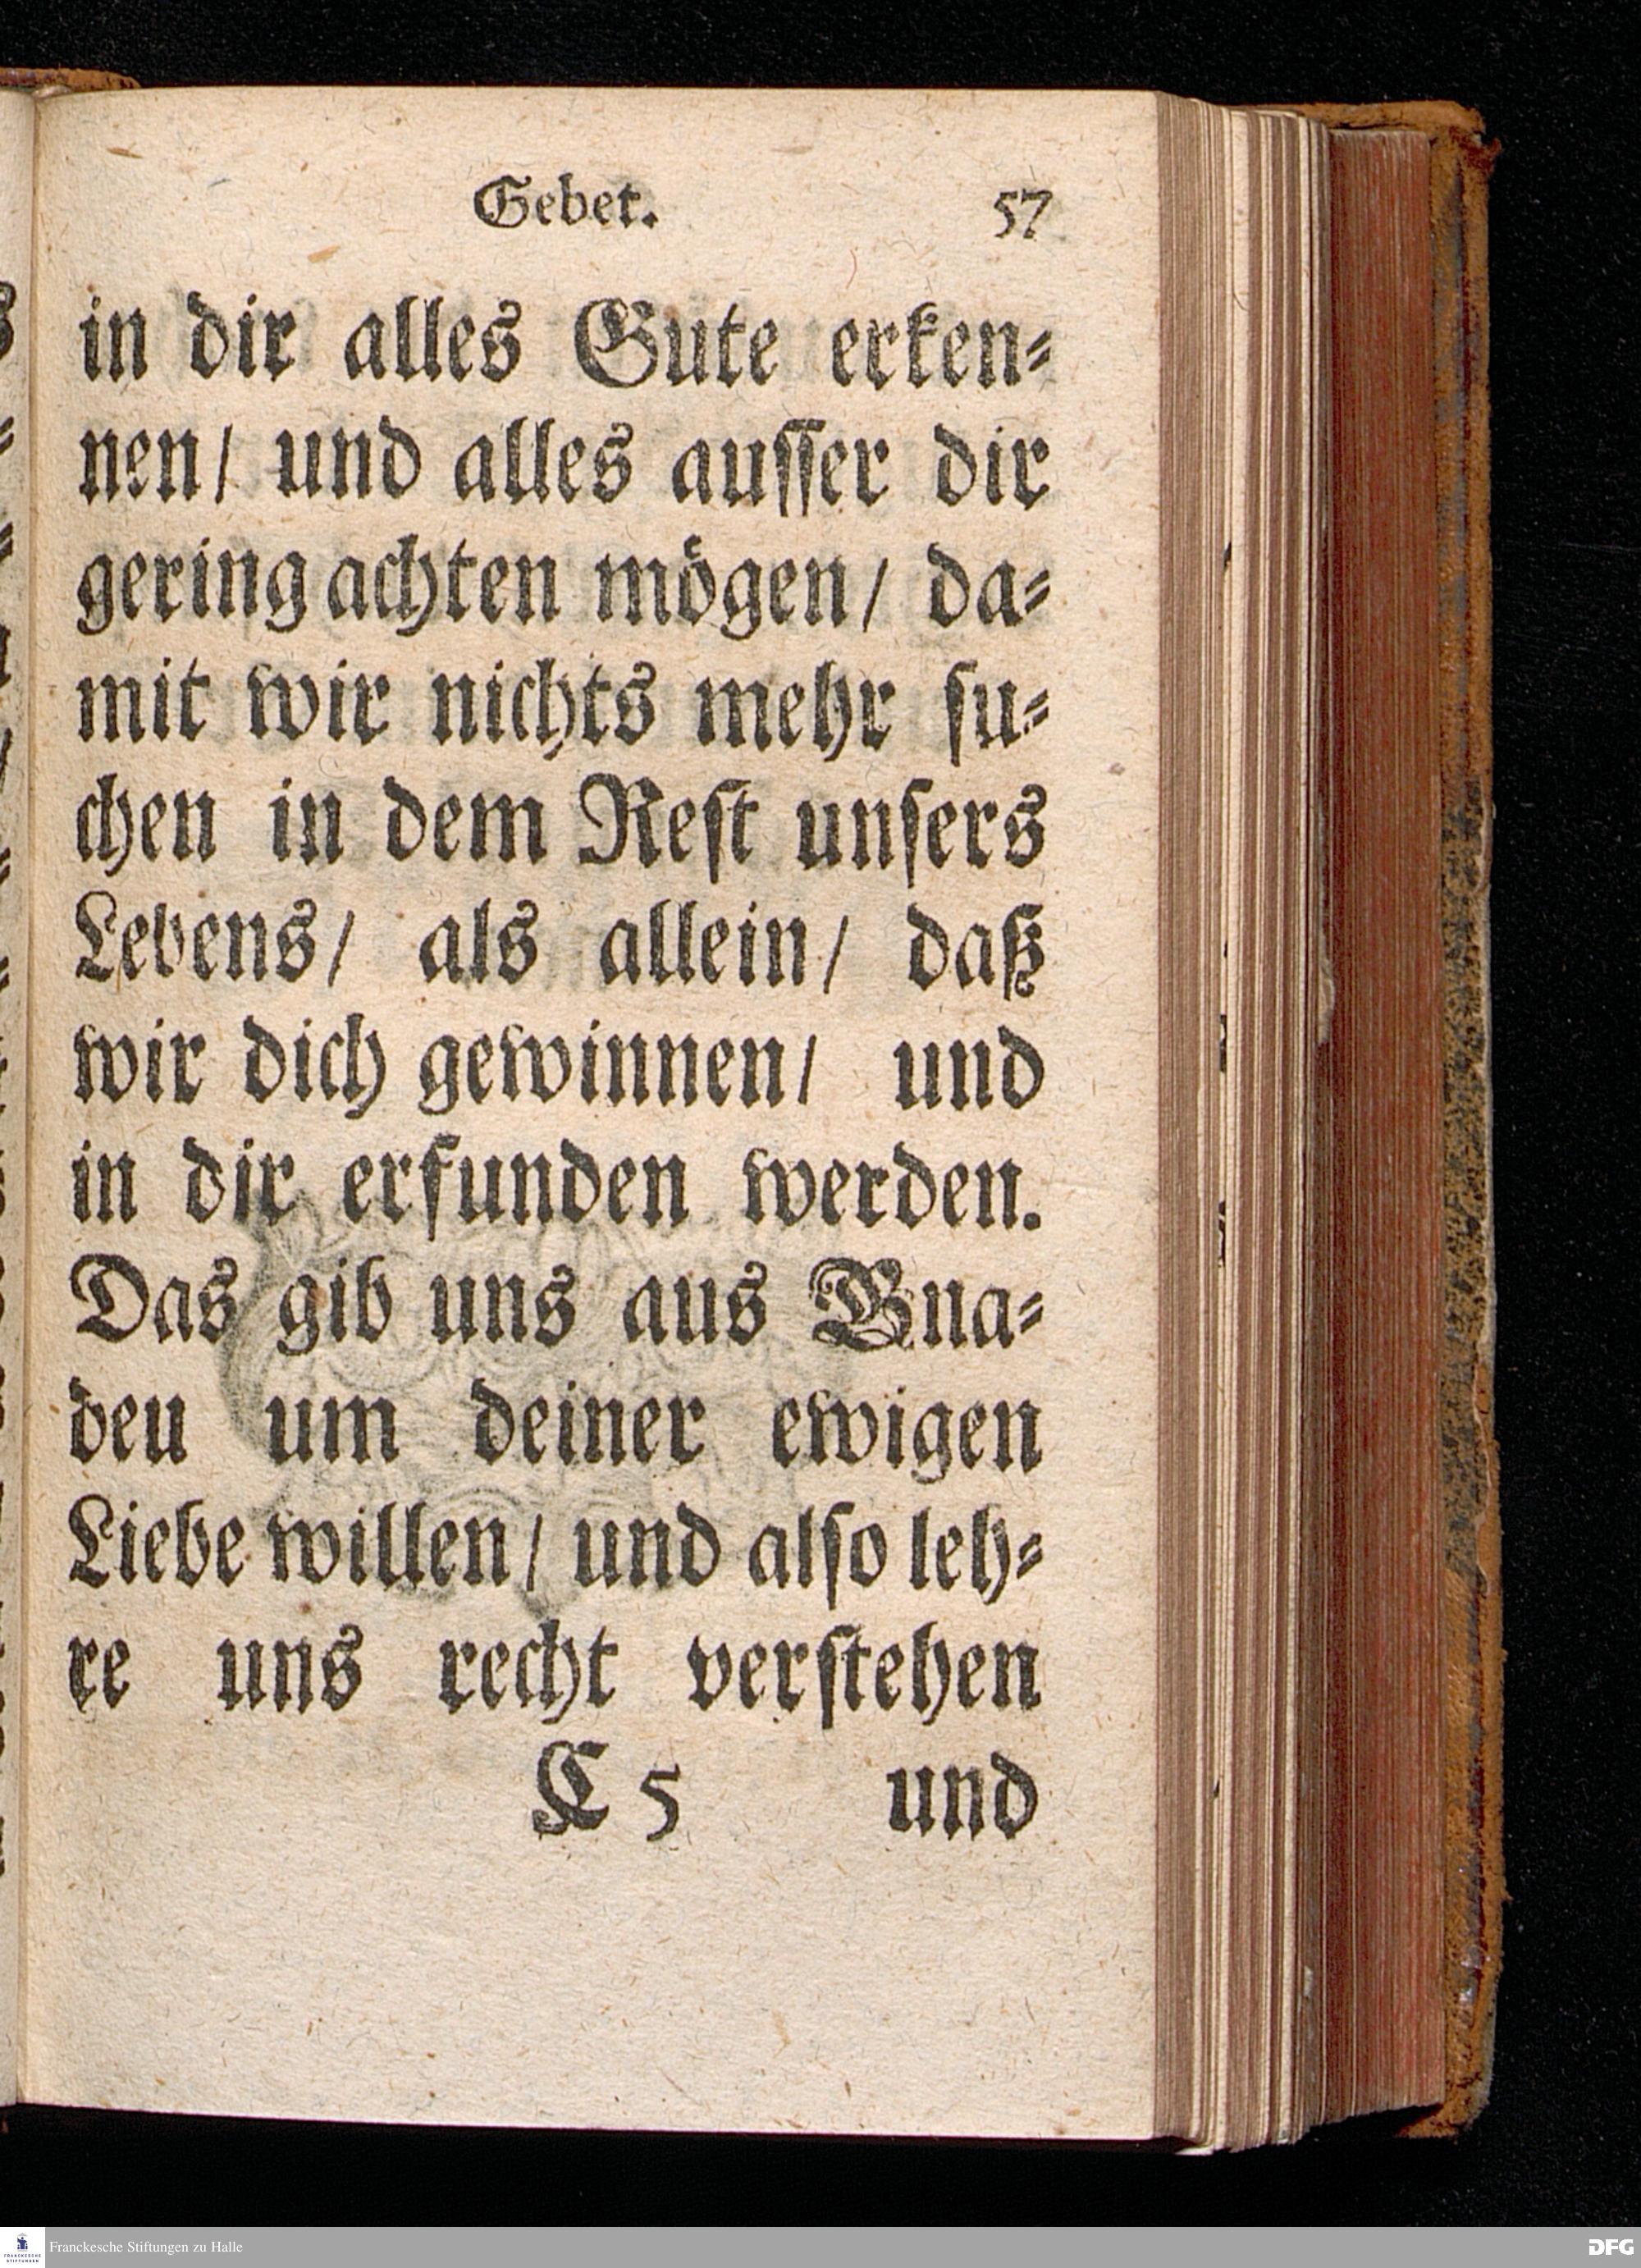 Gebet. 57
in dir alles Gute erken⸗
nen/ und alles auſſer dir
gering achten moͤgen/ da⸗
mit wir nichts mehr ſu⸗
chen in dem Reſt unſers
Lebens/ als allein/ daß
wir dich gewinnen/ und
in dir erfunden werden.
Das gib uns aus Gna⸗
deu um deiner ewigen
Liebe willen/ und alſo leh⸗
re uns recht verſtehen
C 5 und
FRANCKESCHE
STIFTUNGEN
Franckesche Stiftungen zu Halle
DFG